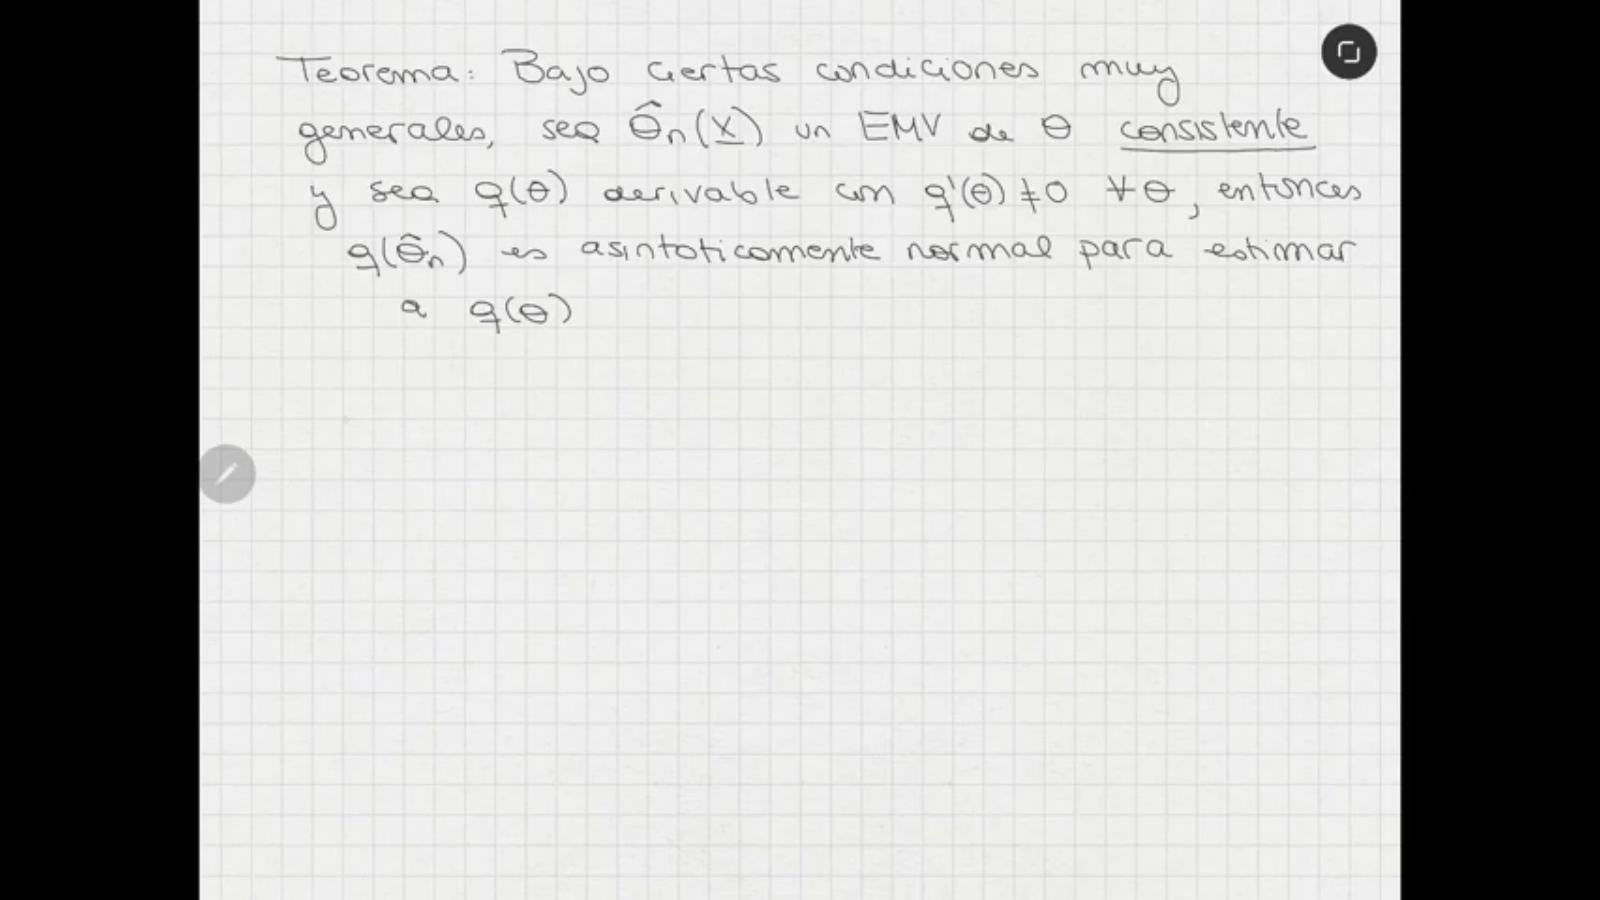 Teorema: Bajo ciertas condiciones muy
generales, sea θ̂n(X) un EMV de θ consistente
y sea q(θ) derivable con q'(θ) ≠ 0 ∀θ, entonces
q(θ̂n) es asintoticamente normal para estimar
a q(θ)